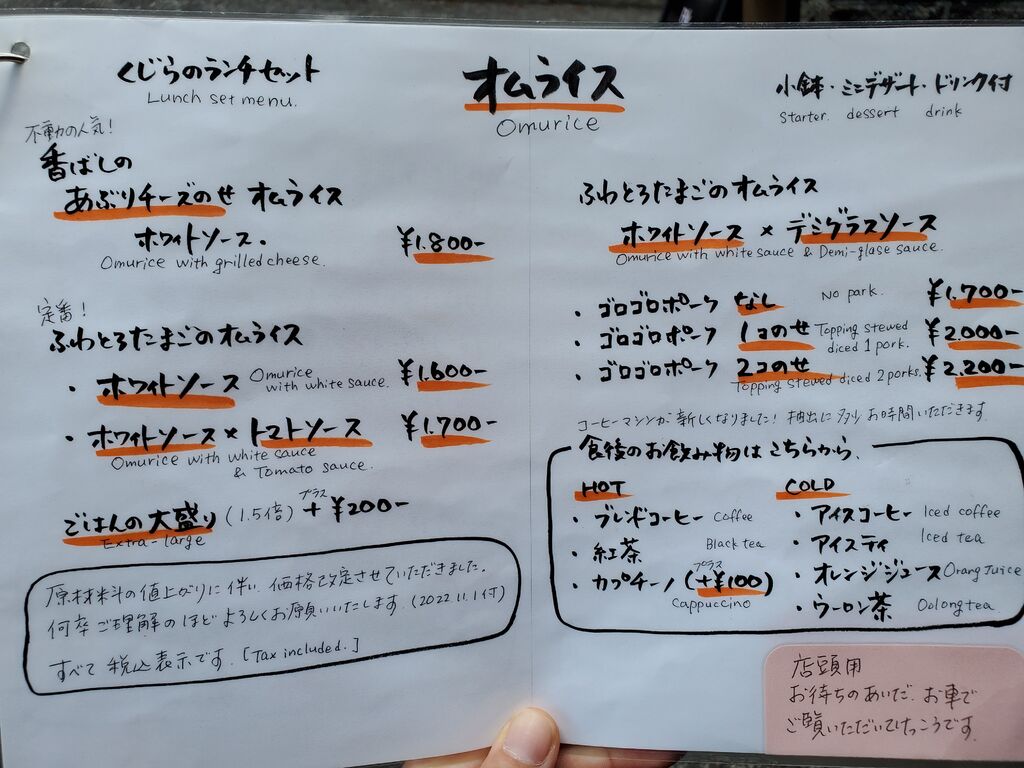 くじらのランチセット
Lunch set menu.
オムライス
Omurice
小鉢・ミニデザート・ドリンク付
Starter. dessert drink
不動の人気!
香ばしの
あぶりチーズのせ オムライス
ホワイトソース. ¥1.800-
Omurice with grilled cheese.
定番!
ふわとろたまごのオムライス
・ホワイトソース Omurice with white sauce. ¥1.600-
・ホワイトソース×トマトソース ¥1.700-
Omurice with white sauce
& Tomato sauce.
ごはんの大盛り(1.5倍) プラス + ¥200-
Extra-large
原材料の値上がりに伴い. 価格改定させていただきました.
何卒ご理解のほどよろしくお願いいたします.(2022.11.1付)
すべて税込表示です. [Tax included.]
ふわとろたまごのオムライス
ホワイトソース × デミグラスソース
Omurice with white sauce & Demi-glase sauce.
・ゴロゴロポーク なし No park. ¥1.700-
・ゴロゴロポーク 1コのせ Topping stewed diced 1 pork. ¥2.000-
・ゴロゴロポーク 2コのせ ¥2.200-
Topping stewed diced 2 porks.
コーヒーマシンが新しくなりました! 抽出に多少お時間いただきます.
食後のお飲み物はこちらから.
HOT
・ブレンドコーヒー Coffee
・紅茶 Black tea
・カプチーノ(プラス +¥100)
Cappuccino
COLD
・アイスコーヒー Iced coffee
・アイスティ Iced tea
・オレンジジュース Orang Juice
・ウーロン茶 Oolong tea
店頭用
お待ちのあいだ. お車で
ご覧いただいてけっこうです.